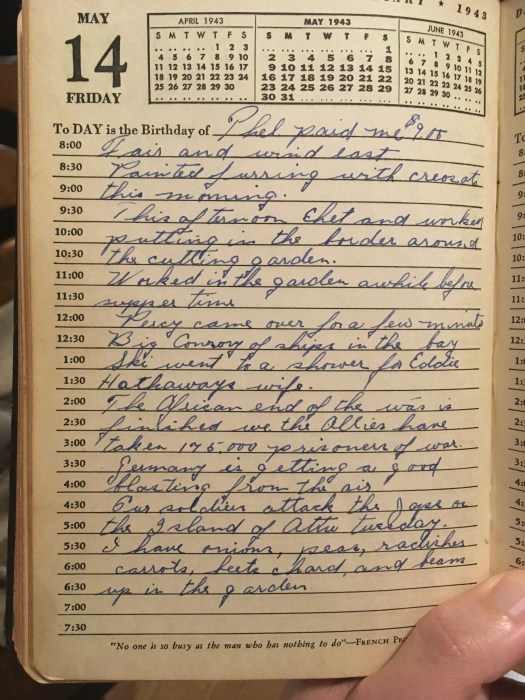 MAY
14
FRIDAY
1943
APRIL 1943
S M T W T F S
.. .. .. .. 1 2 3
4 5 6 7 8 9 10
11 12 13 14 15 16 17
18 19 20 21 22 23 24
25 26 27 28 29 30
MAY 1943
S M T W T F S
1
2 3 4 5 6 7 8
9 10 11 12 13 14 15
16 17 18 19 20 21 22
23 24 25 26 27 28 29
30 31
JUNE 1943
S M T W T F S
.. .. 1 2 3 4 5
6 7 8 9 10 11 12
13 14 15 16 17 18 19
20 21 22 23 24 25 26
27 28 29 30
To DAY is the Birthday of Phel paid me $9.00
8:00 Fair and wind east
8:30 Painted furring with creosote
9:00 this morning.
9:30 This afternoon Chet and worked
10:00 putting in the border around
10:30 the cutting garden.
11:00 Worked in the garden awhile before
11:30 supper time
12:00 Percy came over for a few minute
12:30 Big Convoy of ships in the bay
1:00 Ski went to a shower for Eddie
1:30 Hathaways wife.
2:00 The African end of the war is
2:30 finished we the Allies have
3:00 taken 175,000 prisoners of war.
3:30 Germany is getting a good
4:00 blasting from the air
4:30 Our soldiers attack the Japs on
5:00 the Island of Attu tuesday.
5:30 I have onions, peas, radishes
6:00 carrots, beets chard, and beans
6:30 up in the garden
7:00
7:30
"No one is so busy as the man who has nothing to do"—FRENCH